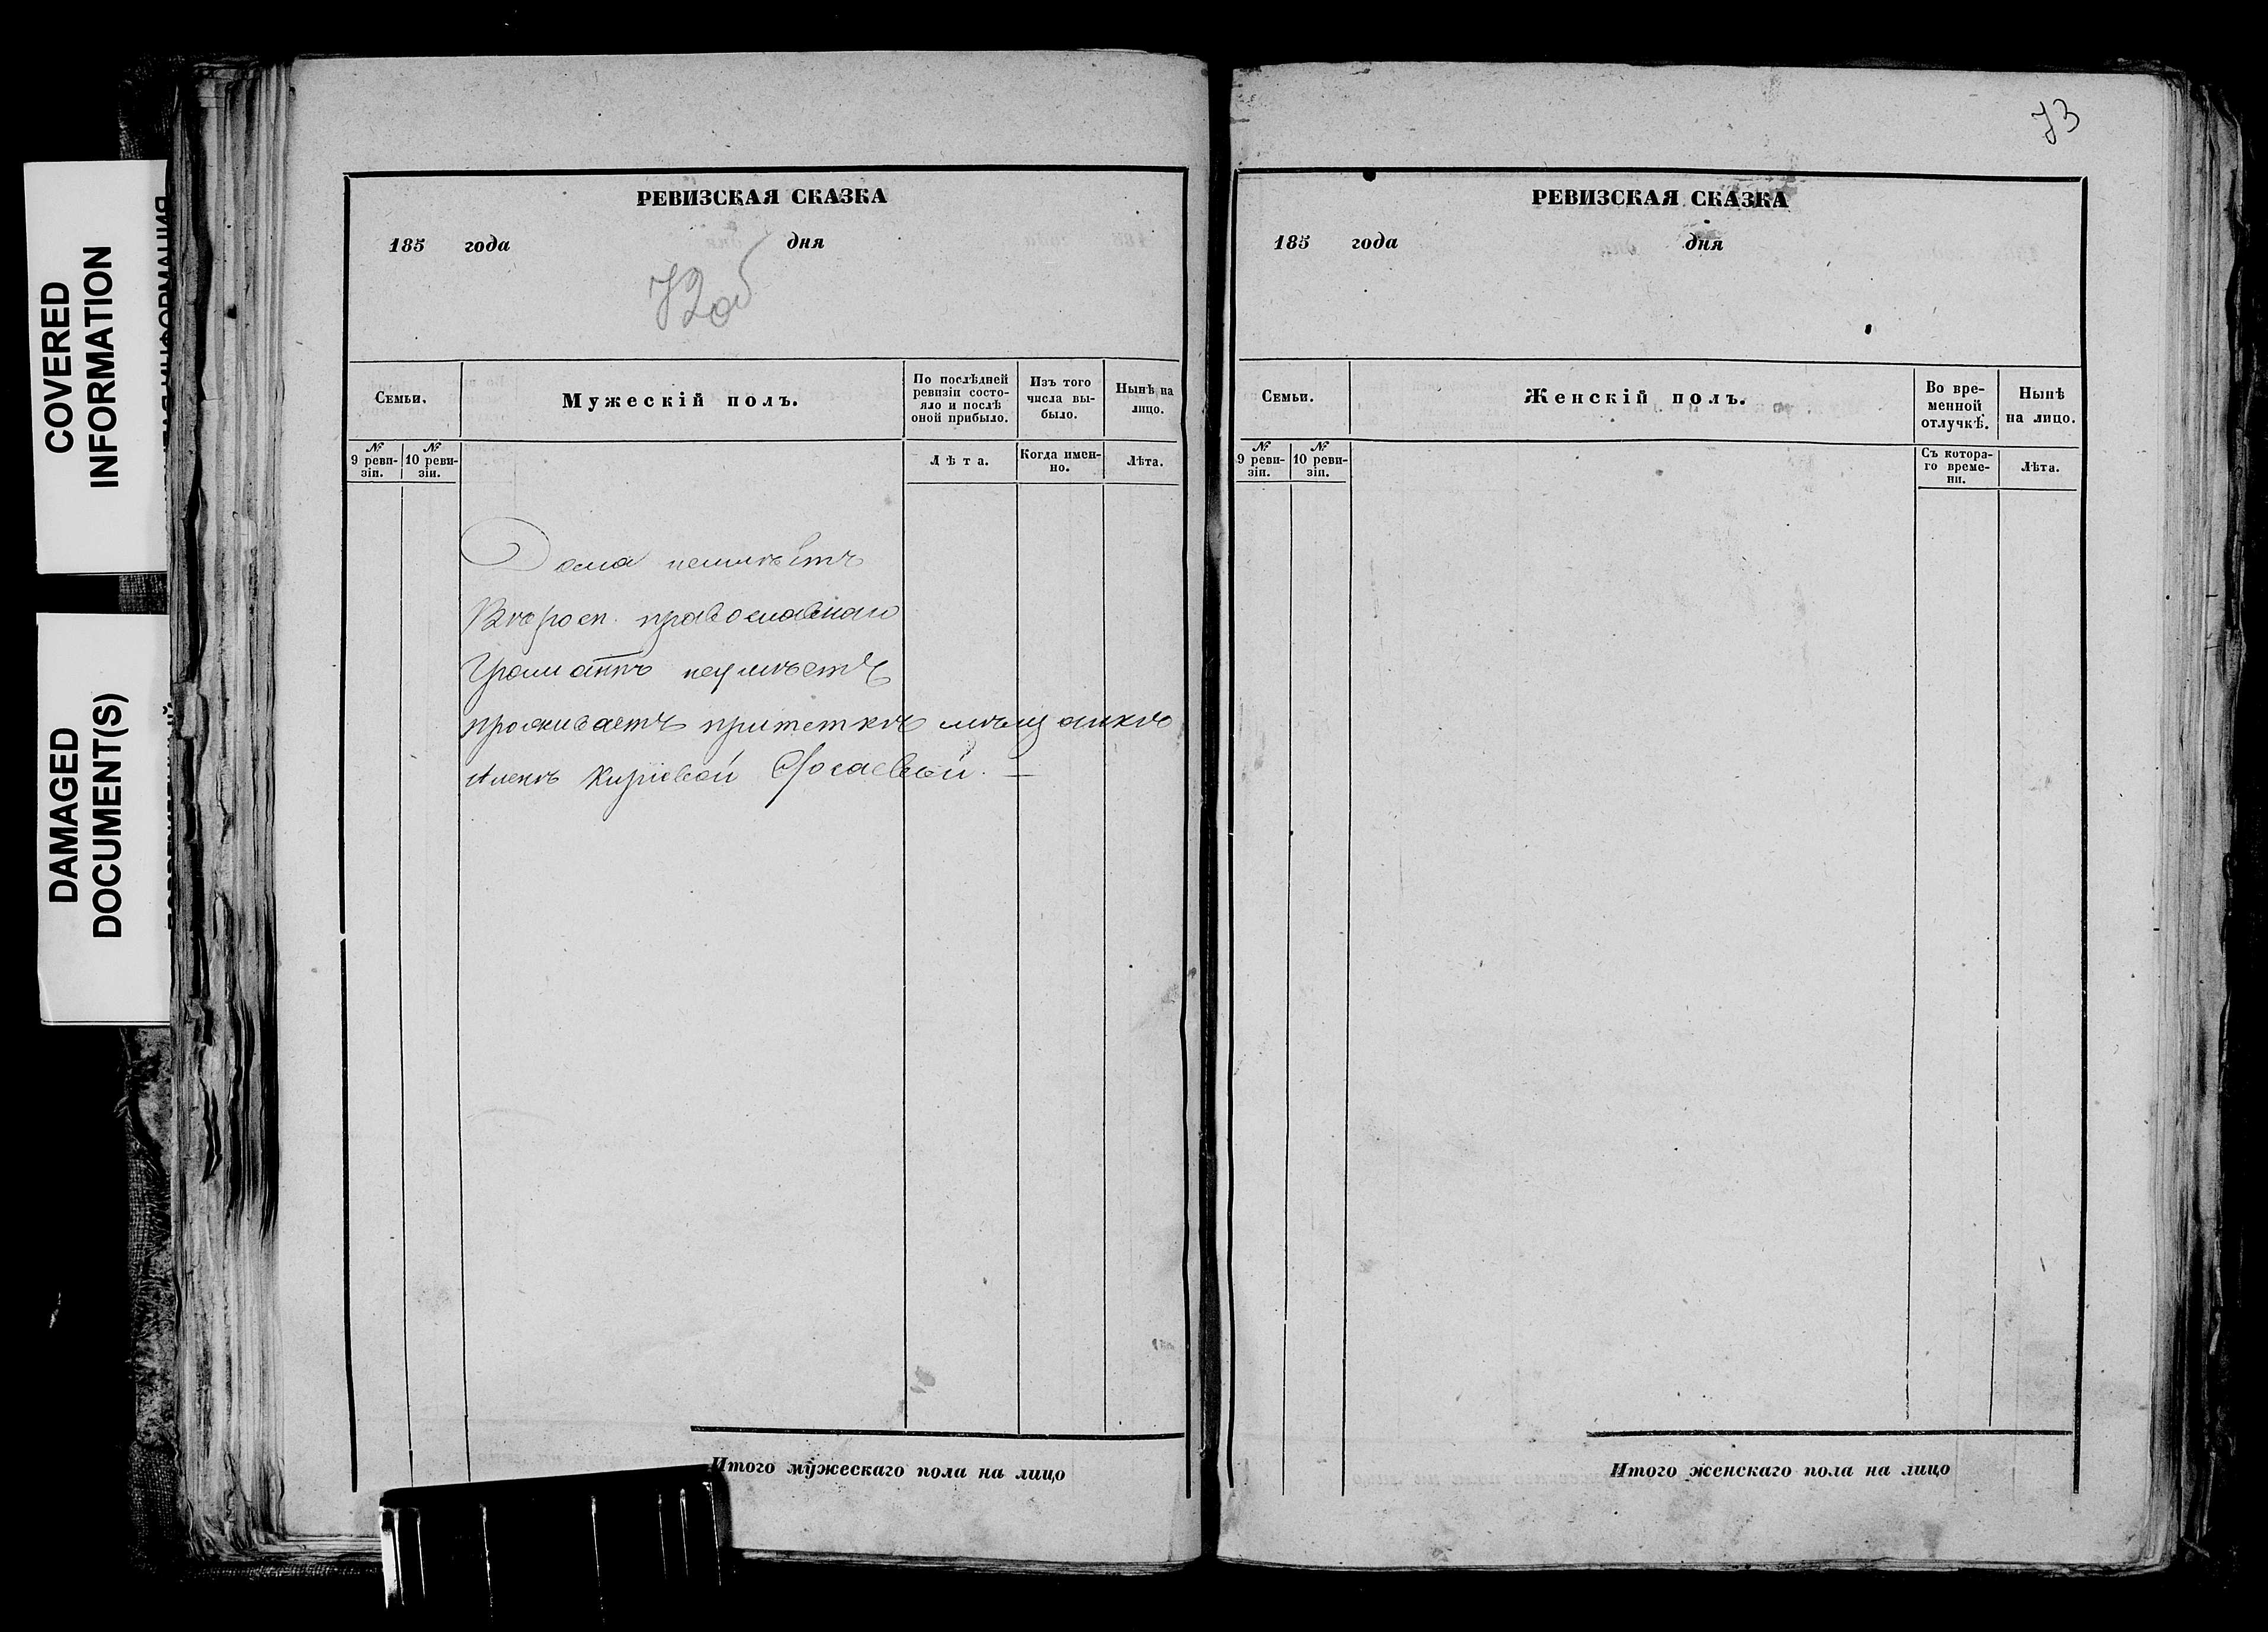 COVERED
INFORMATION
DAMAGED
DOCUMENT(S)
РЕВИЗСКАЯ СКАЗКА
185 года дня
72об
Семьи.
Мужескій полъ.
По послѣдней ревизіи состояло и послѣ оной прибыло.
Изъ того числа выбыло.
Нынѣ на лицо.
№ 9 ревизіи.
№ 10 ревизіи.
Лѣта.
Когда именно.
Лѣта.
Дома неимѣетъ
Вѣроисп. православнаго
Грамматѣ неумѣетъ
проживаетъ притеткѣ мѣщанкѣ
Аленѣ
Итого мужескаго пола на лицо
73
РЕВИЗСКАЯ СКАЗКА
185 года дня
Семьи.
Женскій полъ.
Во временной отлучкѣ.
Нынѣ на лицо.
№ 9 ревизіи.
№ 10 ревизіи.
Съ котораго времени.
Лѣта.
Итого женскаго пола на лицо